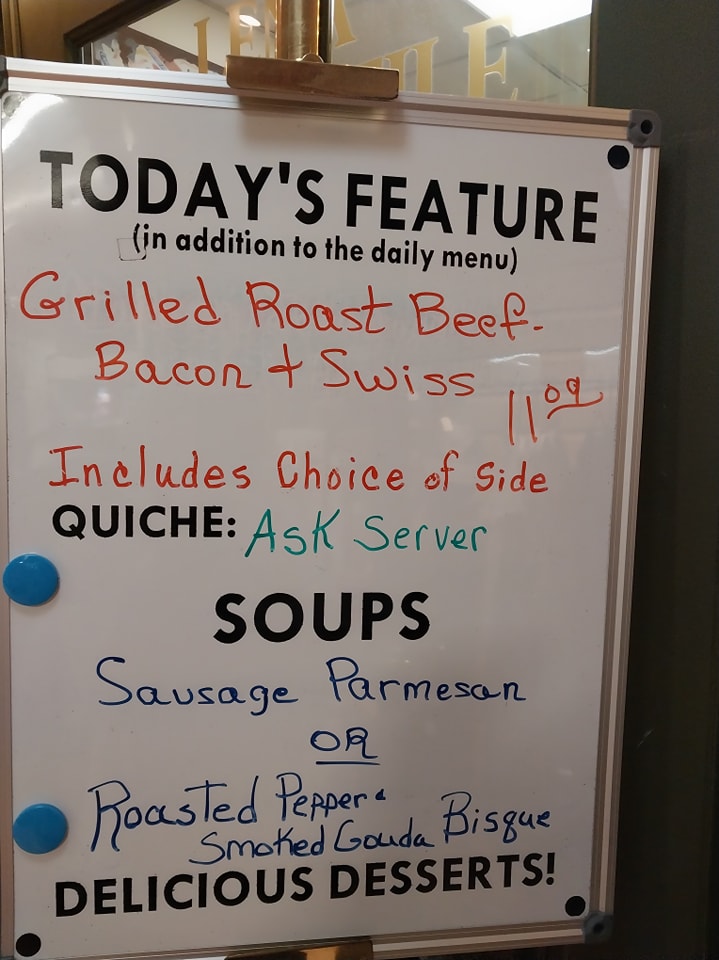 TODAY'S FEATURE
(in addition to the daily menu)
Grilled Roast Beef-
Bacon + Swiss 11.09
Includes Choice of Side
QUICHE: Ask Server
SOUPS
Sausage Parmesan
OR
Roasted Pepper &
Smoked Gouda Bisque
DELICIOUS DESSERTS!